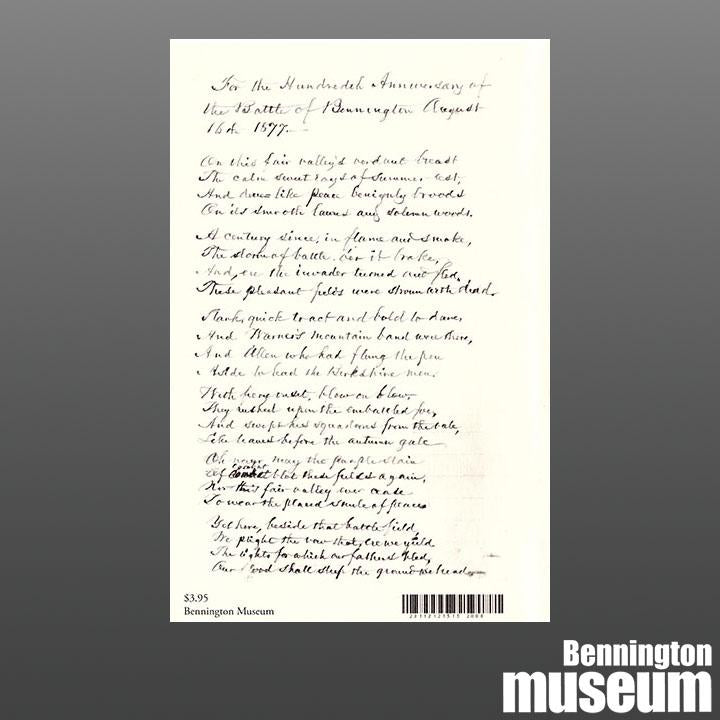 For the Hundredth Anniversary of
the Battle of Bennington August
16th 1877.—
On this fair valley's verdant breast
The calm sweet rays of Summer rest,
And dove like peace benignly broods
On its smooth lawns and solemn woods.
A century since, in flame and smoke,
The storm of battle o'er it brake,
And, ere the invader turned and fled,
These pleasant fields were strown with dead.
Stark, quick to act and bold to dare,
And Warner's mountain band were there,
And Allen who had flung the pen
Aside to lead the Berkshire men.
With fiery onset, blow on blow,
They rushed upon the embattled foe,
And swept his squadrons from the vale,
Like leaves before the autumn gale
Oh never may the purple stain
Of combat blot these fields again,
Nor this fair valley ever cease
To wear the placid smile of peace
Yet here, beside that battle field,
We plight the vow that, ere we yield
The rights for which our fathers bled,
Our blood shall steep the ground we tread.
$3.95
Bennington Museum
Bennington
museum